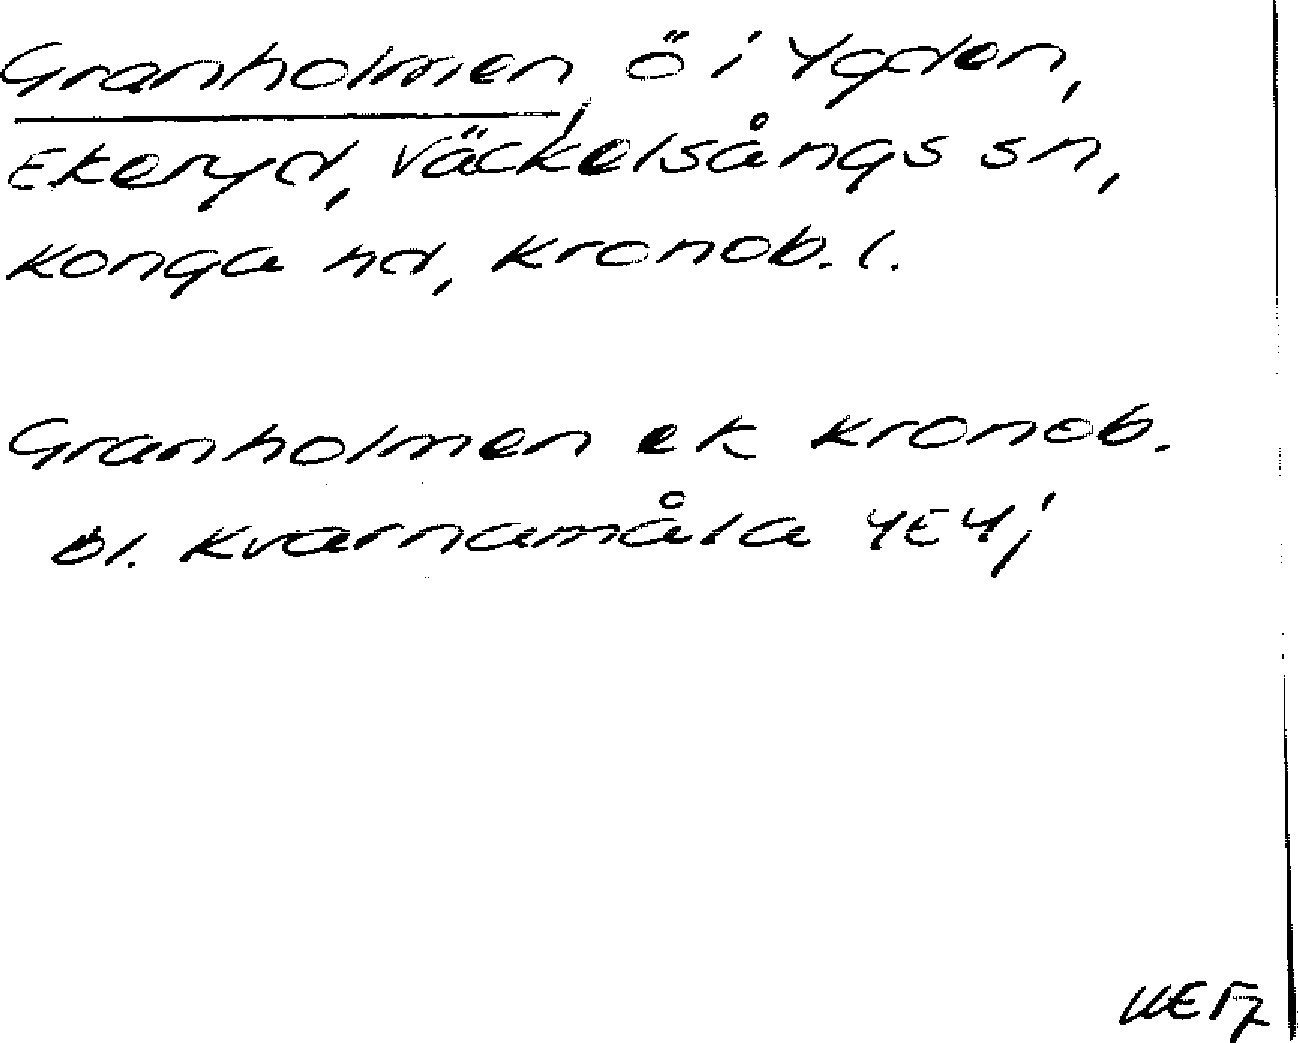 Granholmen, ö i Ygden,
Ekeryd, Väckelsångs sn,
Konga hd, Kronob. l.
Granholmen ek Kronob.
bl. Kvarnamåla 4E4j